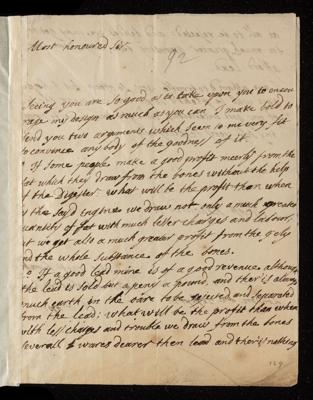 Most honoured Sir
92
Seeing you are so good as to take upon you to encou
rage my design as much as you can I make bold to
send you two arguments which seem to me very fit
to convince any body of the goodness of it.
If some people make a good profit meerly from the
fat which they draw from the bones without the help
of the Digester what will be the profit than when
by the sayd engine we draw not only a much greater
quantity of fat with much lesser charges and labour,
but we get also a much greater profit from the gely
and the whole substance of the bones.
2º If a good lead mine is of a good revenue although
the lead is sold but a peny a pound, and ther is allways
much earth in the oare to be rejected and separated
from the lead: what will be the profit than when
with less charges and trouble we draw from the bones
severall wares dearer then lead and ther is nothing
129